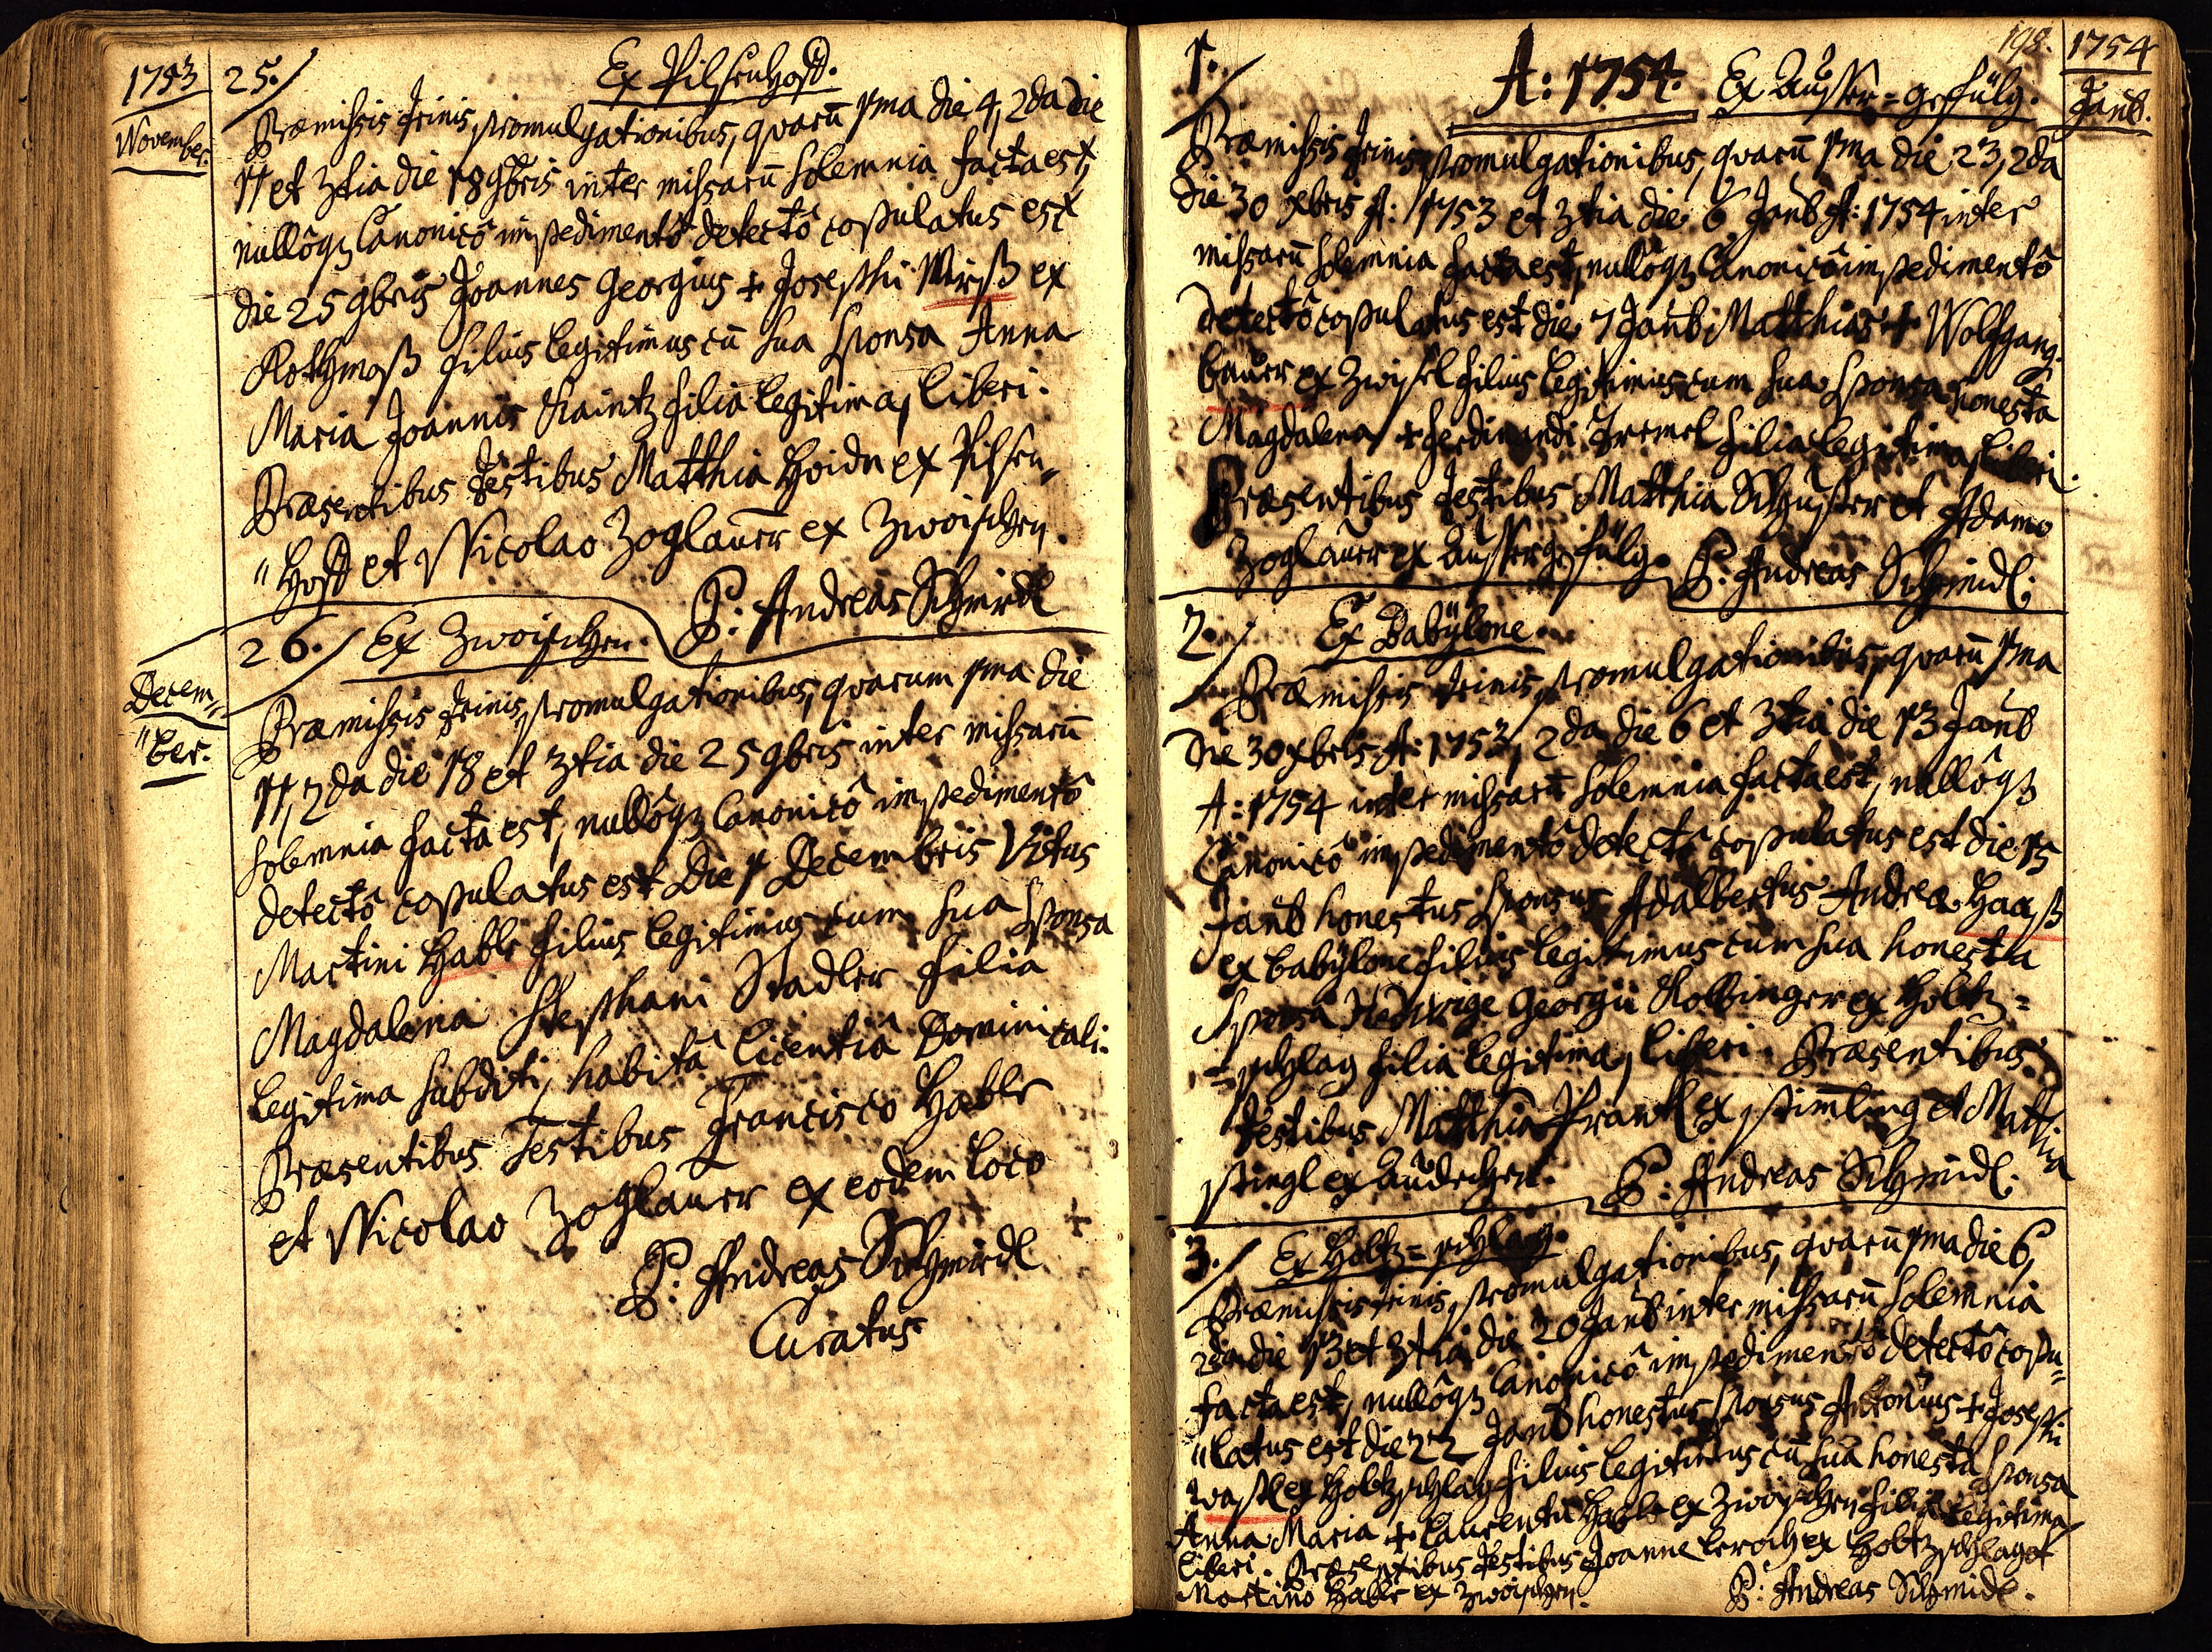 1753
November.
25./ Ex Pilsenhoff.
Præmissis trinis promulgationibus, quarū 1ma die 4, 2da die
11 et 3tia die 18 9bris inter missarū solemnia facta est,
nullôqȝ Canonicô impedimentô detectô copulatus est
die 25 9bris Joannes Georgius + Josephi Wirß ex
Rothmoß filius legitimus cū sua sponsa Anna
Maria Joannis Kaintz filia legitima, liberi.
Præsentibus testibus Matthia Hoidn ex Pilsen„
„hoff et Nicolao Zoglauer ex Zwoischen.
P: Andreas Schmidl
Decem„
„ber.
26./ Ex Zwoischen.
Præmissis trinis promulgationibus, quarum 1ma die
11, 2da die 18 et 3tia die 25 9bris inter missarū
solemnia facta est, nullôqȝ Canonicô impedimentô
detectô copulatus est Die 1 Decembris Vitus
Martini Hable filius legitimus cum sua sponsa
Magdalena Stephani Stadler filia
legitima subditi, habitâ licentiâ Dominicali.
Præsentibus Testibus Francisco Hable
et Nicolao Zoglauer ex eodem loco
P: Andreas Schmidl
Curatus
198.
1754
Janû.
A: 1754.
1./ Ex Ausser=gefülg.
Præmissis trinis promulgationibus, quarū 1ma die 23, 2da
die 30 Xbris A: 1753 et 3tia die 6 Janû A: 1754 inter
missarū solemnia facta est, nullôqȝ Canonicô impedimentô
detectô copulatus est die 7 Janû Matthias + Wolfgang.
bauer ex Zwisel filius legitimus cum sua sponsa honesta
Magdalena + Ferdinandi Tremel filia legitima, liberi.
Præsentibus testibus Matthia Schuster et Adamo
Zoglauer ex Aussergefülg. P: Andreas Schmidl.
2./ Ex Babÿlone.
Præmissis trinis promulgationibus, quarū 1ma
Die 30 Xbris A: 1753, 2da die 6 et 3tia die 13 Janû
A: 1754 inter missarū solemnia facta est, nullôqȝ
Canonicô impedimentô detectô copulatus est die 15
Janû honestus sponsus Adalbertus Andreæ Haaß
ex babÿlone filius legitimus cum sua honesta
sponsa Hedwige Georgii Kollinger ex Holtz=
=schlag filia legitima, liberi. Præsentibus
testibus Matthia Prantl ex stimling et Matthia
stingl ex P: Andreas Schmidl.
3./ Ex Holtz=schlag.
Præmissis trinis promulgationibus, quarū 1ma die 6,
2da die 13 et 3tia die 20 Janû inter missarū solemnia
facta est, nullôqȝ Canonicô impedimentô detectô copu„
„latus est die 22 Janû honestus sponsus Antonius + Josephi
ex Holtzschlag filius legitimus cū sua honesta sponsa
Anna Maria + Laurentii Hable ex Zwoischen filia legitima,
liberi. Præsentibus testibus Joanne ex Holtzschlag et
Martino Hable ex Zwoischen. P: Andreas Schmidl.